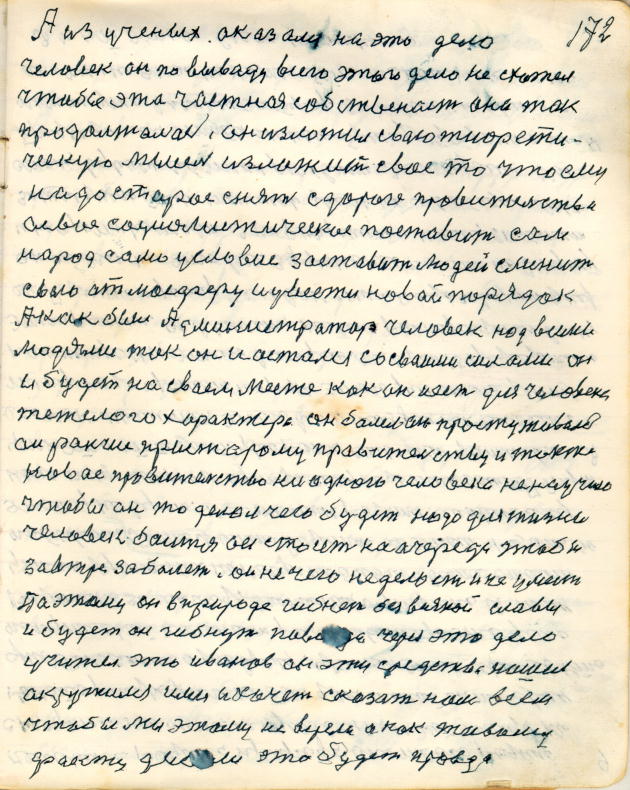 172
А из ученых оказался на это дело
человек он по вываду всего этого дело не схотел
чтобы эта частная собственаст она так
продолжалас, он изложил сваю тиорети-
ческую мысел изложит свое то что ему
надо старое снят с дороге провителства
а евое социолистическое поставит сам
народ само условие заставит людей сменит
сваю атмосферу и увести новай порядок
А как был Администратор человек над всеми
людями так он и астался со сваими силами он
и будет на сваем месте как он ест для человека
тежелого характера он балел он простуживался
он ранше при старому правителству и также
новае провителство ни одного человека не научило
чтобы он то делал чего будет надо для жизни
человек боится он стоит на очереде чтобы
завтре заболет. он не чего не делает и не умеет
Паэтому он в природе гибнет без всякой славы
и будет он гибнут через это дело
учител это иванов он эти средства нашел
окружился ими и хочет сказат нам всем
чтобы мы этаму не верели а как живому
факту это будет правда